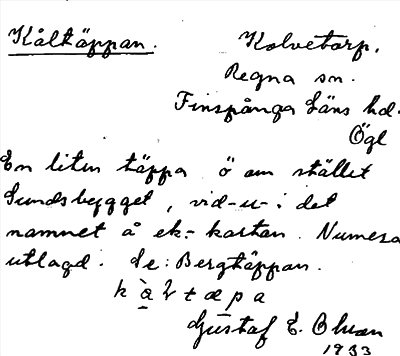 Kåltäppan.
Kolvetorp.
Regna sn.
Finspånga Läns hd.
Ögl
En liten täppa ö om stället
Sundsbygget, vid-u-i det
namnet å ek:-kartan. Numera
utlagd. Se: Bergtäppan.
Gustaf E. Ohman
1933